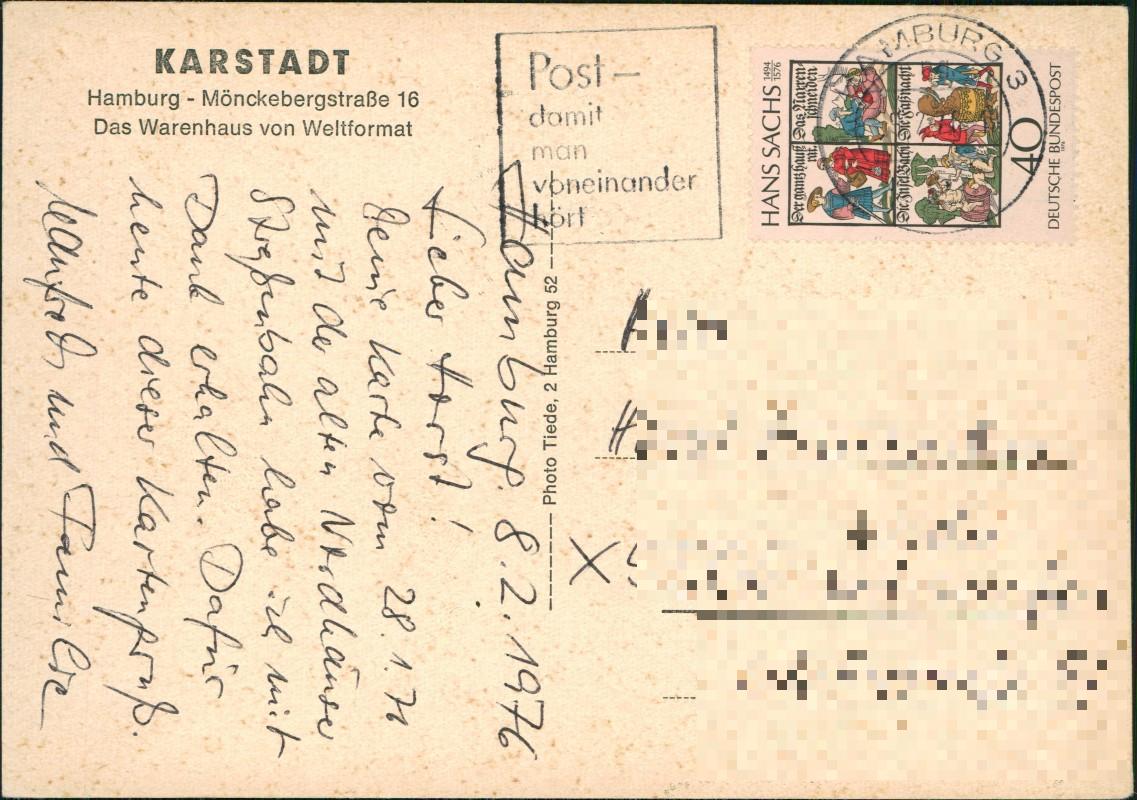 KARSTADT
Hamburg - Mönckebergstraße 16
Das Warenhaus von Weltformat
Post –
damit
man
voneinander
hört
HAMBURG 3
HANS SACHS 1494 1576
Das Narren-
schneiden
Die Faßnacht
40
DEUTSCHE BUNDESPOST
Photo Tiede, 2 Hamburg 52
Hamburg. 8.2.1976
Lieber Horst!
Deine Karte vom 28.1.76
mit der alten Nordhäuser
Straßenbahn habe ich mit
Dank erhalten. Dafür
heute dieser Kartengruß.
Manfred und Familie